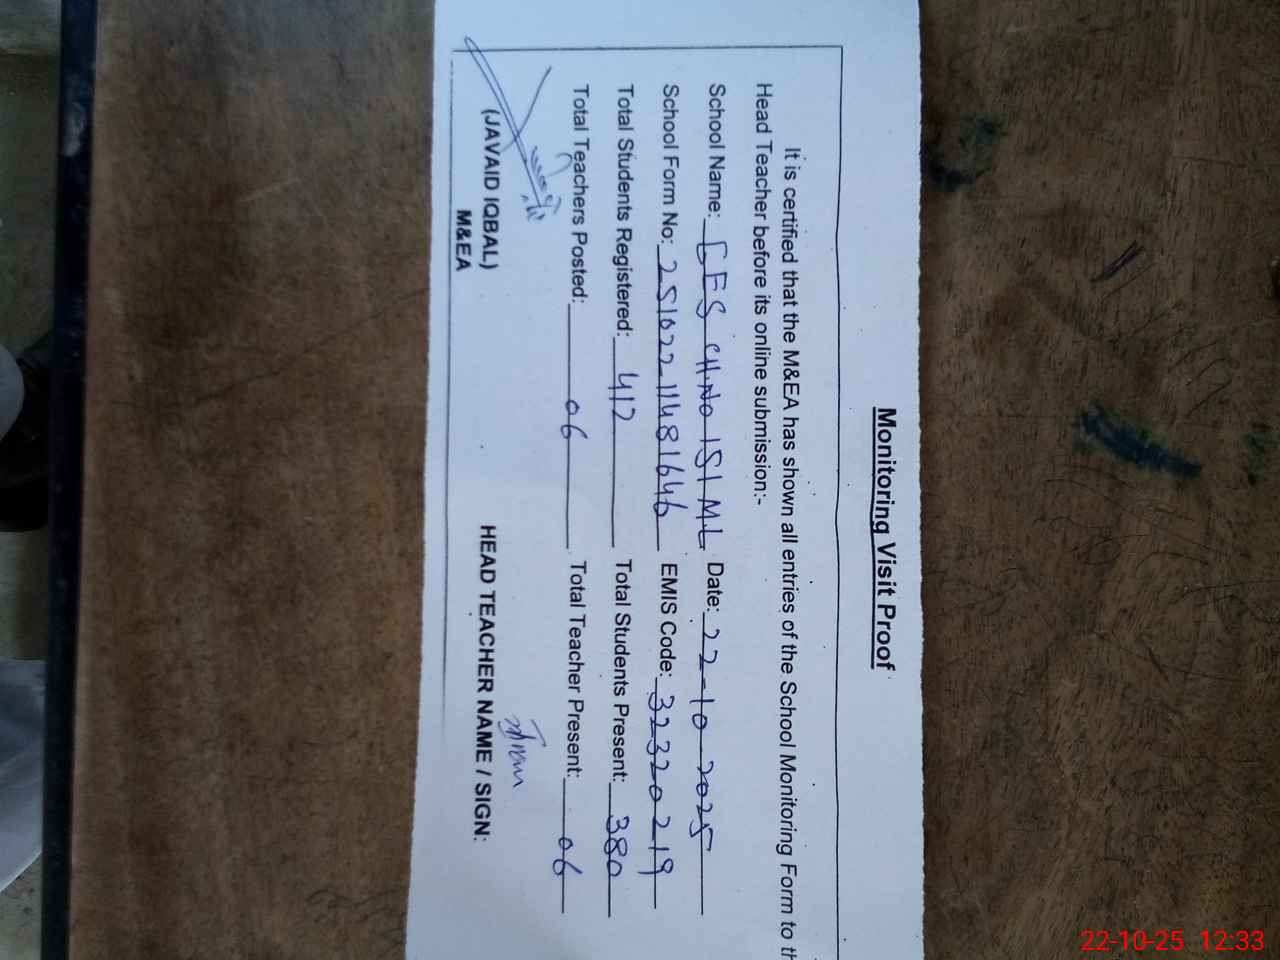 Monitoring Visit Proof
It is certified that the M&EA has shown all entries of the School Monitoring Form to th
Head Teacher before its online submission:-
School Name: GES CH.No 151 ML Date: 22-10-2025
School Form No: 251022-11481646 EMIS Code: 32320219
Total Students Registered: 412 Total Students Present: 380
Total Teachers Posted: 06 Total Teacher Present: 06
(JAVAID IQBAL) HEAD TEACHER NAME / SIGN:
M&EA
22-10-25 12:33